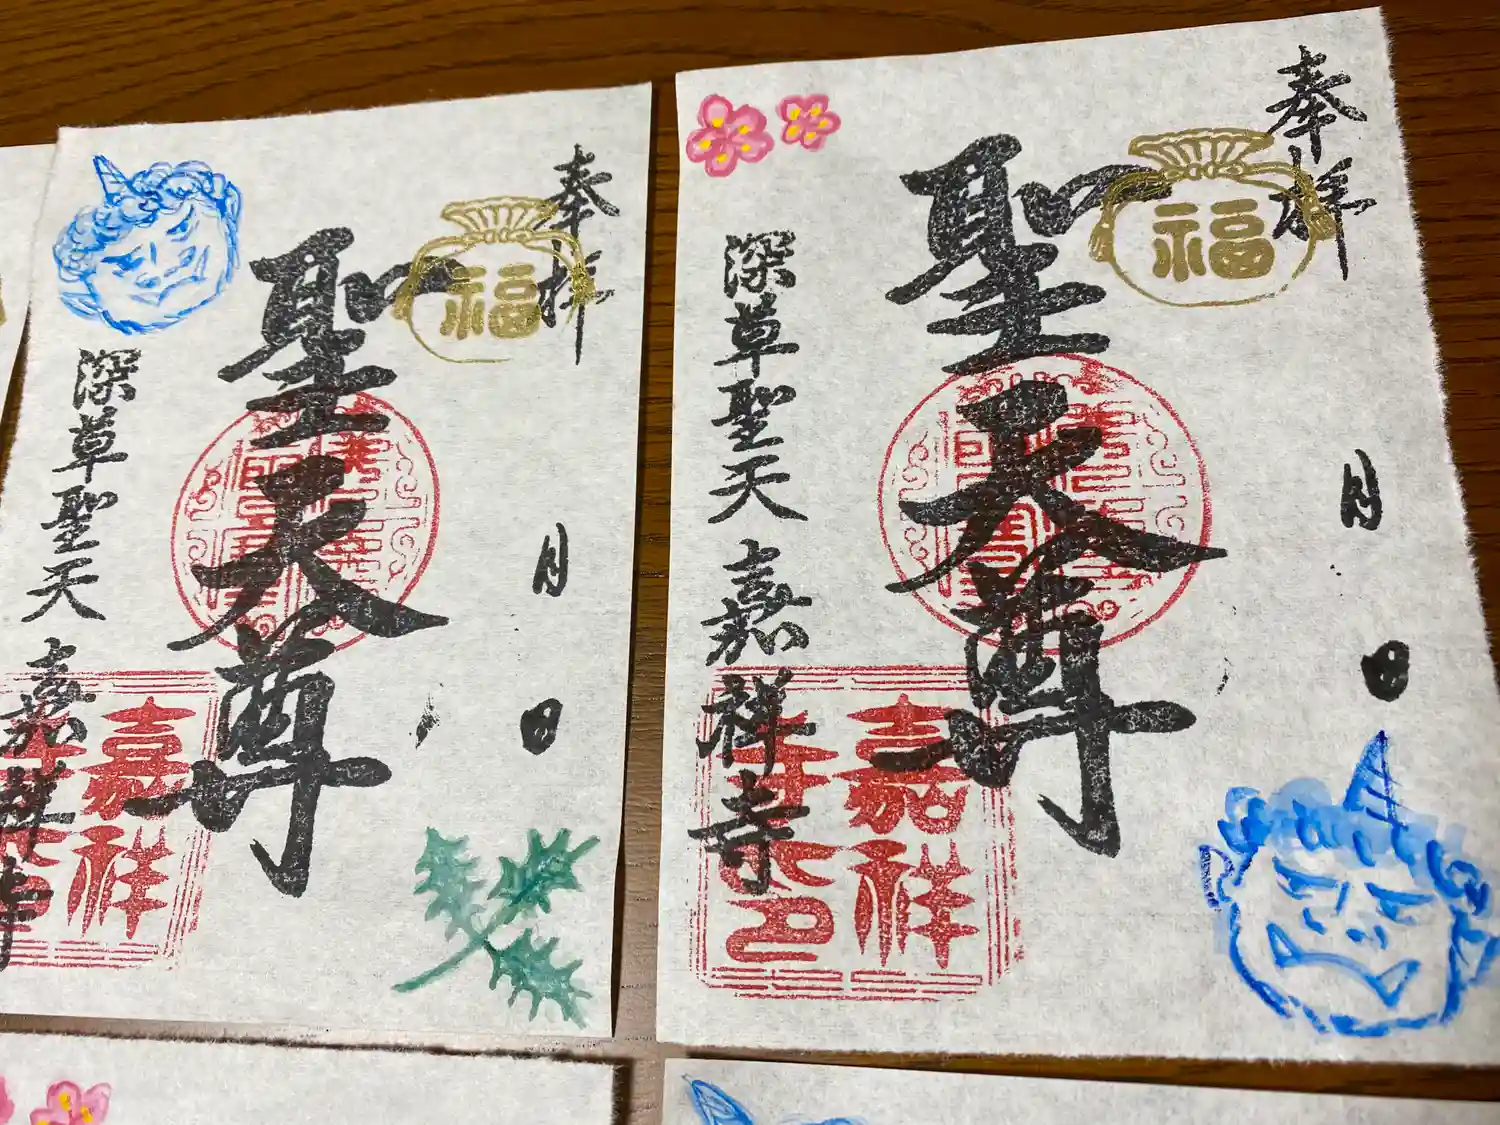 奉拝
福
聖天尊
月 日
深草聖天 嘉祥寺
嘉祥
奉拝
福
聖天尊
月 日
深草聖天 嘉祥寺
嘉祥
寺印